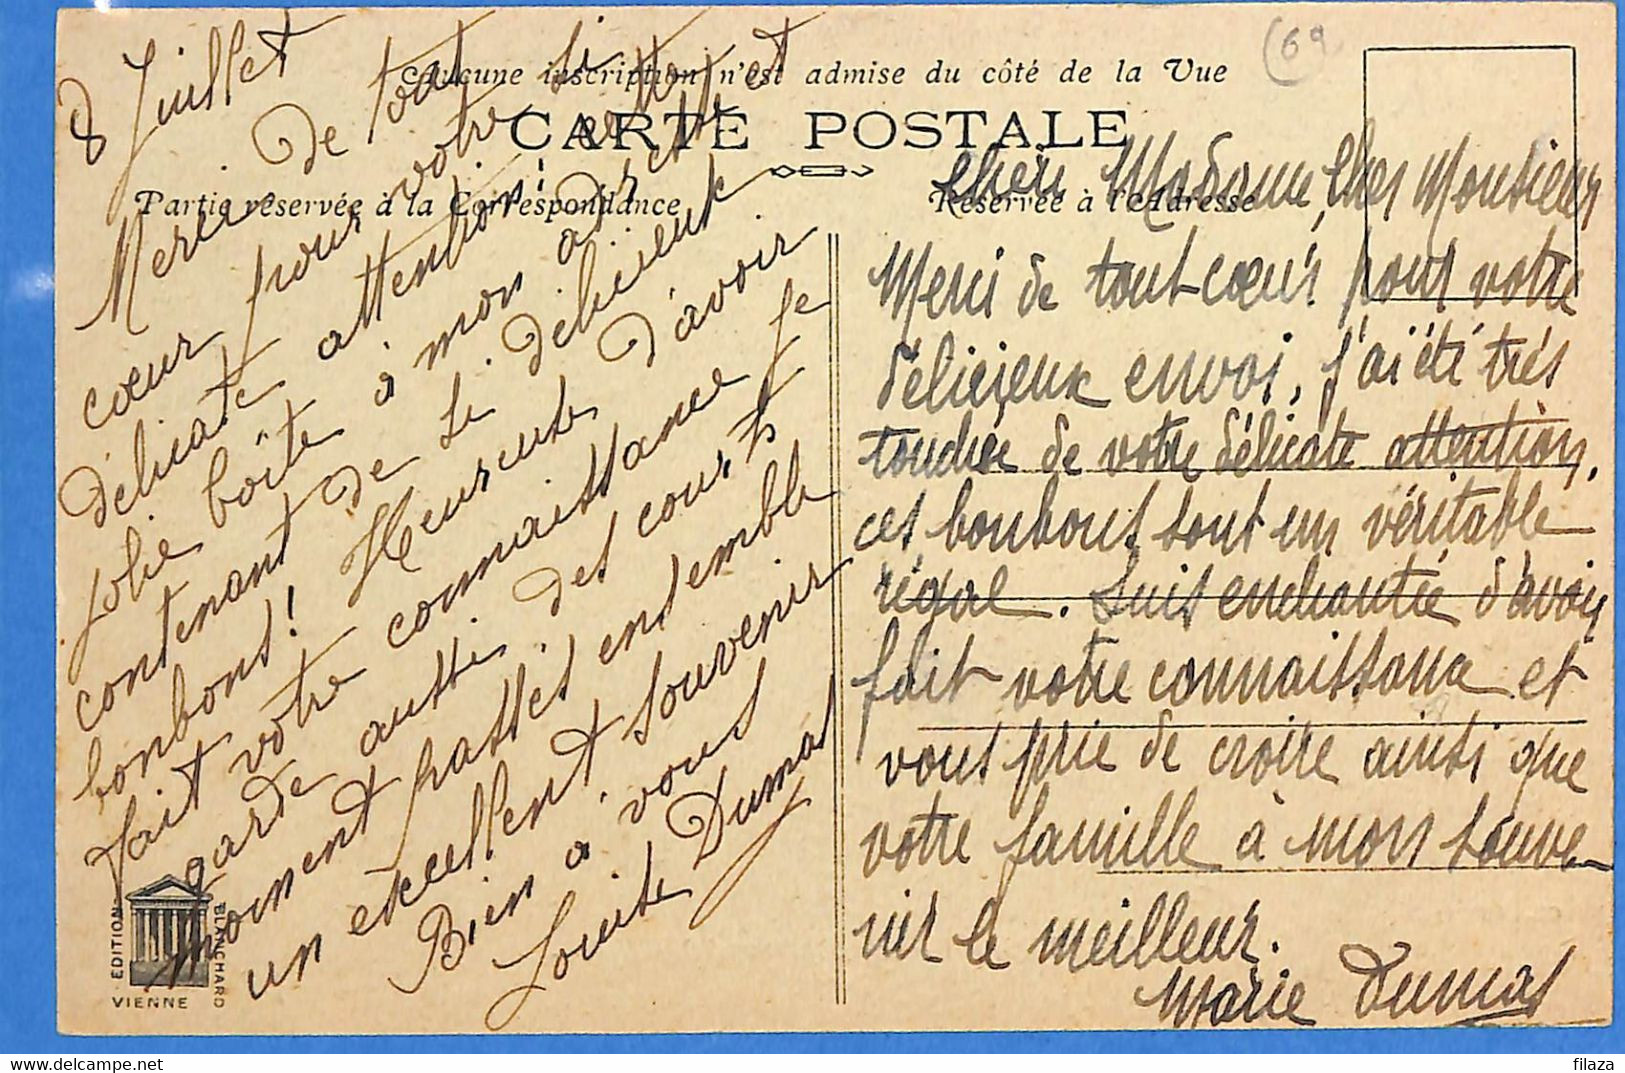 Aucune inscription n'est admise du côté de la Vue
CARTE POSTALE
Partie réservée à la Correspondance
Réservée à l'Adresse
(69
8 Juillet
Merci de tout
cœur pour votre si
délicate attention, cette
jolie boîte à mon adresse et
contenant de si délicieux
bonbons! Heureuse d'avoir
fait votre connaissance je
garde aussi des courts
moments passés ensemble
un excellent souvenir
Bien à vous
Louise Dumas
Chère Madame, Cher Monsieur
Merci de tout cœur pour votre
délicieux envoi, j'ai été très
touchée de votre délicate attention,
ces bonbons sont un véritable
régal. Suis enchantée d'avoir
fait votre connaissance et
vous prie de croire ainsi que
votre famille à mon souve-
nir le meilleur.
Marie Dumas
EDITION
BLANCHARD
VIENNE
filaza